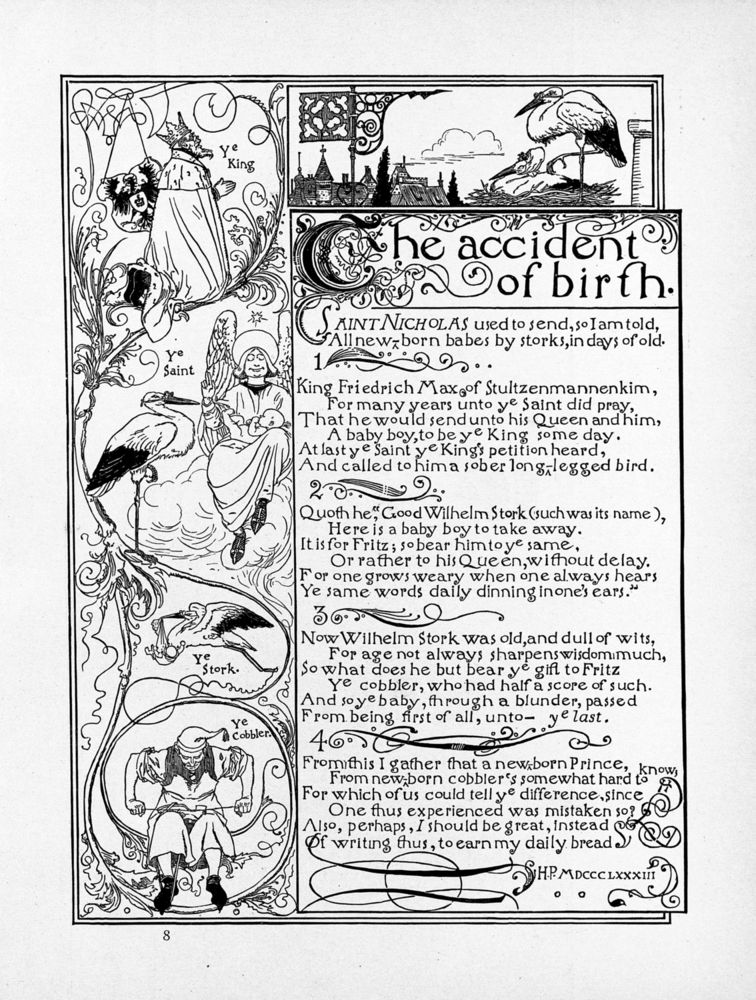 Ye
King
Ye
Saint
Ye
Stork.
Ye
Cobbler.
The accident
of birth.
SAINT NICHOLAS used to send, so I am told,
All new-born babes by storks, in days of old.
1
King Friedrich Max of Stultzenmannenkim,
For many years unto ye Saint did pray,
That he would send unto his Queen and him,
A baby boy, to be ye King some day.
At last ye Saint ye King's petition heard,
And called to him a sober long-legged bird.
2
Quoth he, "Good Wilhelm Stork (such was its name),
Here is a baby boy to take away.
It is for Fritz; so bear him to ye same,
Or rather to his Queen, without delay.
For one grows weary when one always hears
Ye same words daily dinning in one's ears."
3
Now Wilhelm Stork was old, and dull of wits,
For age not always sharpens wisdom much,
So what does he but bear ye gift to Fritz
Ye cobbler, who had half a score of such.
And so ye baby, through a blunder, passed
From being first of all, unto— ye last.
4
From this I gather that a new-born Prince,
From new-born cobbler's somewhat hard to know;
For which of us could tell ye difference, since
One thus experienced was mistaken so?
Also, perhaps, I should be great, instead
Of writing thus, to earn my daily bread
H.P. MDCCCLXXXIII
8